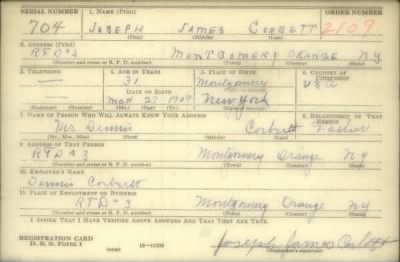 SERIAL NUMBER 1. NAME (Print) ORDER NUMBER
704 JOSEPH JAMES CORBETT 2109
(First) (Middle) (Last)
2. ADDRESS (Print)
RFD #3 MONTGOMERY ORANGE NY
(Number and street or R. F. D. number) (Town) (County) (State)
3. TELEPHONE 4. AGE IN YEARS 5. PLACE OF BIRTH 6. COUNTRY OF CITIZENSHIP
— 31 Montgomery USA
DATE OF BIRTH (Town or county)
— Mar 27 1909 New York
(Exchange) (Number) (Mo.) (Day) (Yr.) (State or country)
7. NAME OF PERSON WHO WILL ALWAYS KNOW YOUR ADDRESS 8. RELATIONSHIP OF THAT PERSON
Mr Dennis Corbett Father
(Mr., Mrs., Miss) (First) (Middle) (Last)
9. ADDRESS OF THAT PERSON
RFD #3 Montgomery Orange NY
(Number and street or R. F. D. number) (Town) (County) (State)
10. EMPLOYER'S NAME
Dennis Corbett
11. PLACE OF EMPLOYMENT OR BUSINESS
RFD #3 Montgomery Orange NY
(Number and street or R. F. D. number) (Town) (County) (State)
I AFFIRM THAT I HAVE VERIFIED ABOVE ANSWERS AND THAT THEY ARE TRUE.
REGISTRATION CARD
D. S. S. Form 1 Joseph James Corbett
(Registrant's signature)